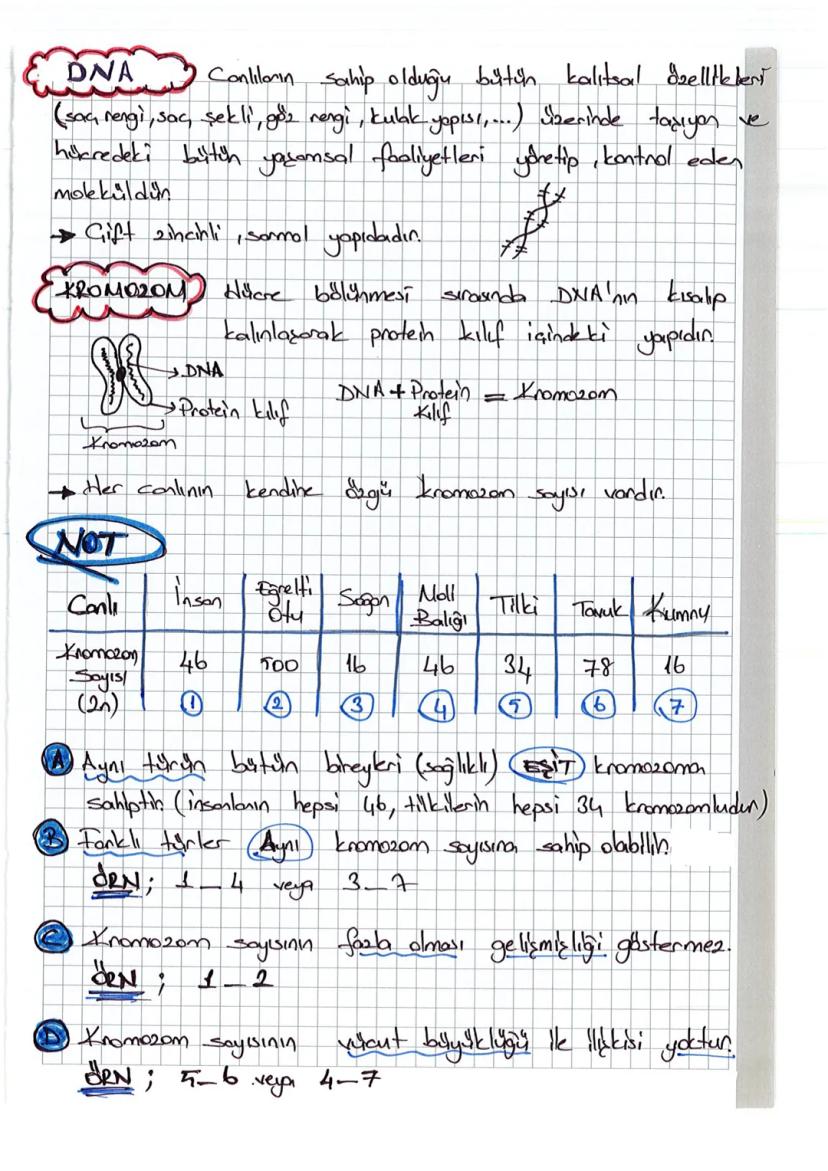 DNA Canlıların sahip olduğu bütün kalıtsal özellikleri
(saç rengi, saç şekli, göz rengi, kulak yapısı,...) üzerinde taşıyan ve
hücredeki bütün yaşamsal faaliyetleri yönetip, kontrol eden
moleküldür.
→ Çift zincirli, sarmal yapıdadır.
KROMOZOM Hücre bölünmesi sırasında DNA'nın kısalıp
kalınlaşarak protein kılıf içindeki yapıdır.
→ DNA
→ Protein kılıf
Kromozom
DNA + Protein Kılıf = Kromozom
→ Her canlının kendine özgü kromozom sayısı vardır.
NOT
Canlı İnsan Eğrelti Otu Soğan Moli Balığı Tilki Tavuk Kumru
Kromozom Sayısı (2n) 46 500 16 46 34 78 16
1 2 3 4 5 6 7
A Aynı türün bütün bireyleri (sağlıklı) EŞİT kromozoma
sahiptir (insanların hepsi 46, tilkilerin hepsi 34 kromozomludur)
B Farklı türler Aynı kromozom sayısına sahip olabilir.
ÖRN; 1_4 veya 3_7
C Kromozom sayısının fazla olması gelişmişliği göstermez.
ÖRN; 1_2
D Kromozom sayısının vücut büyüklüğü ile ilişkisi yoktur.
ÖRN; 5_6 veya 4_7